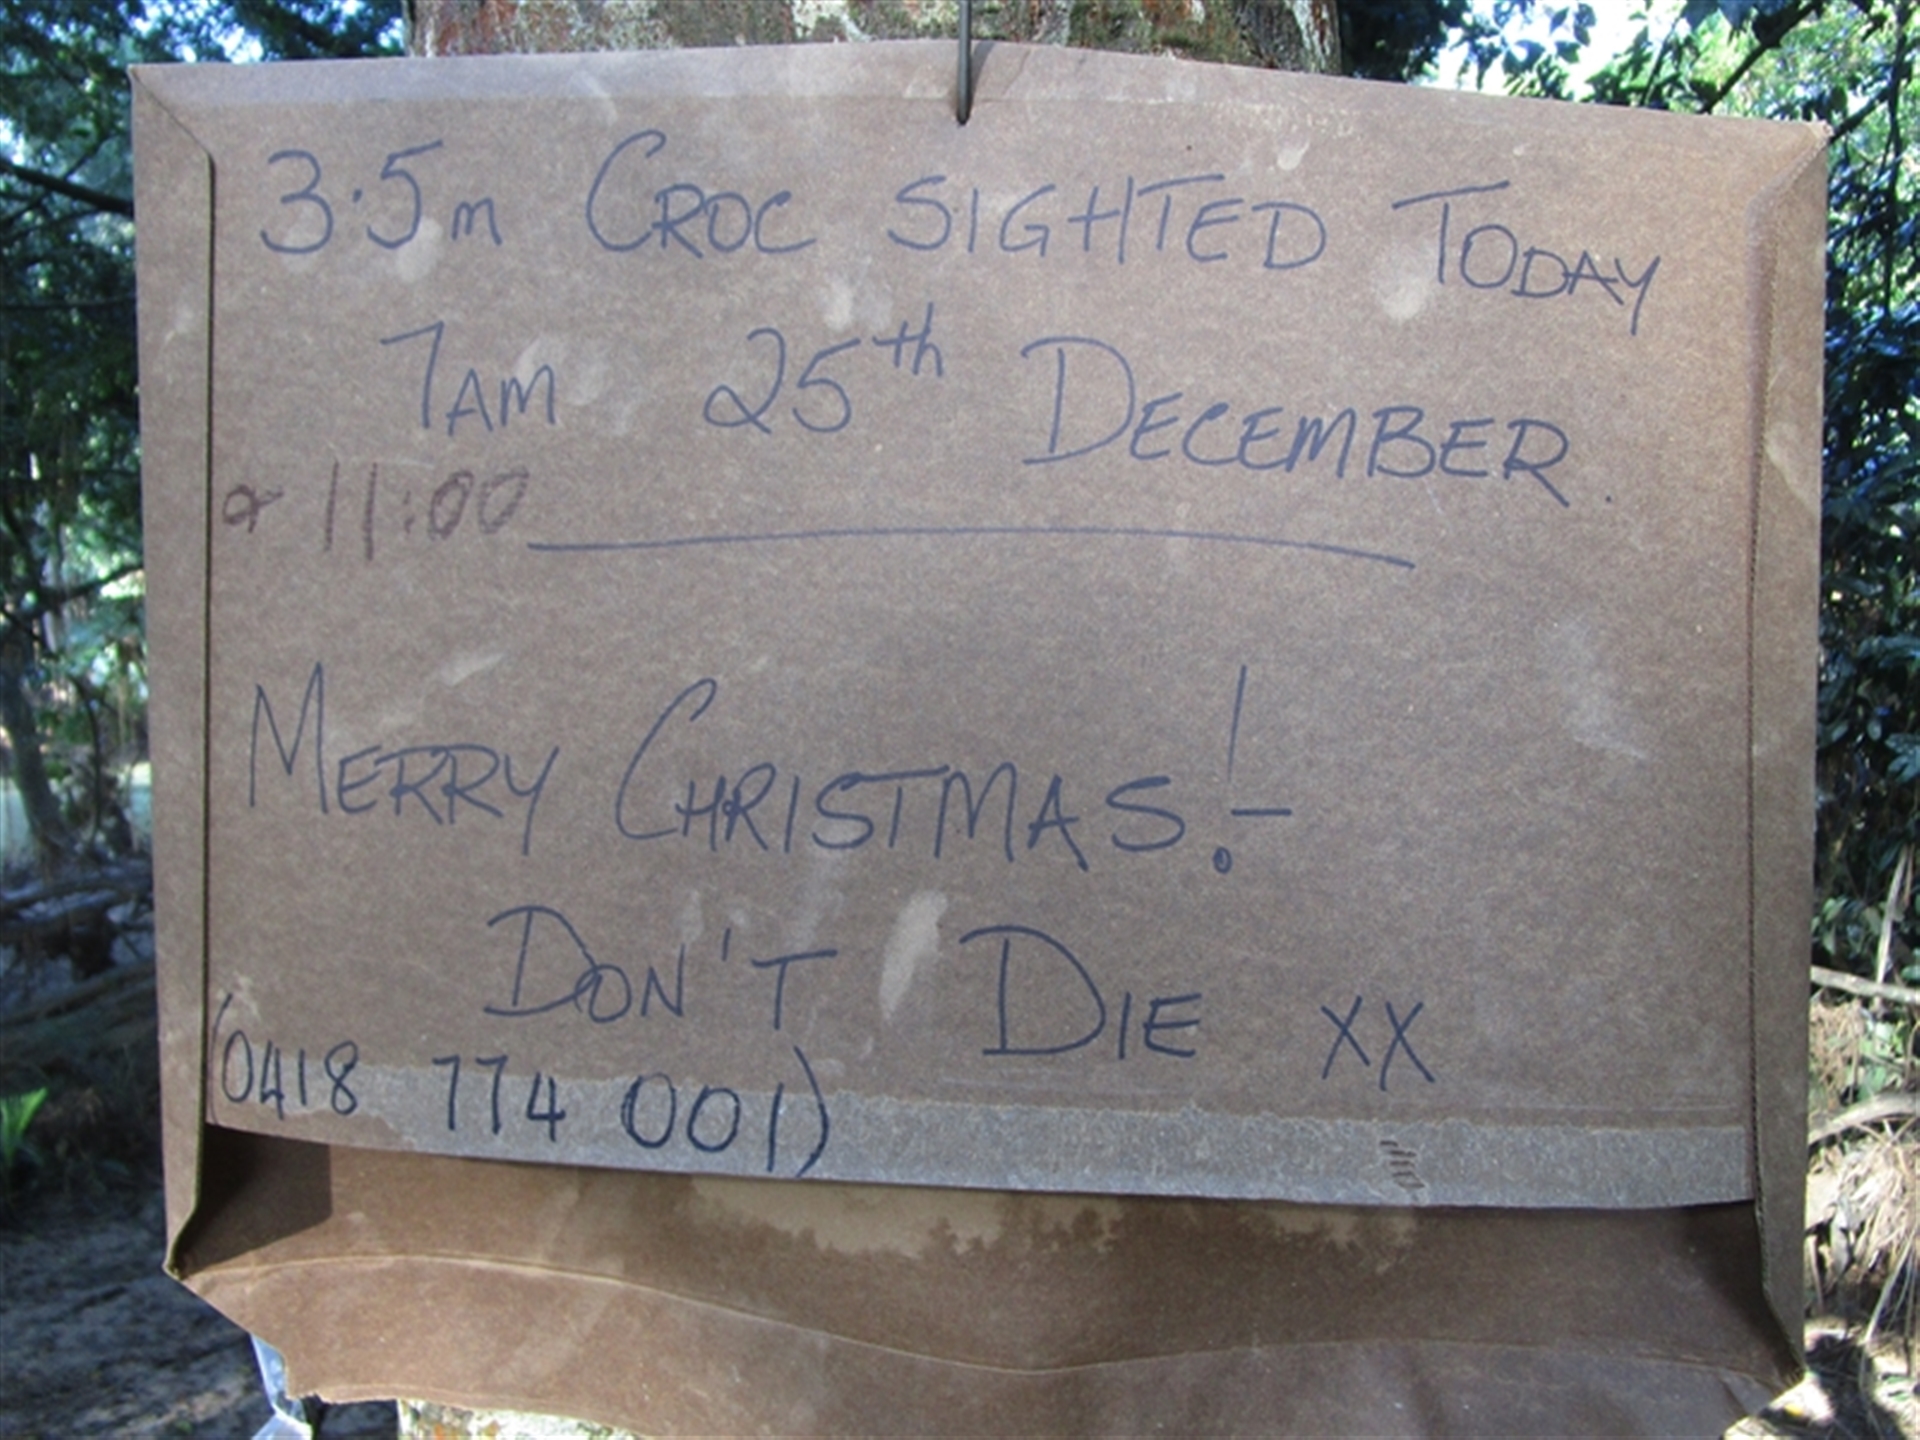 3.5m CROC SIGHTED TODAY
7AM 25th DECEMBER.
+ 11:00
MERRY CHRISTMAS!
DON'T DIE XX
(0418 774 001)